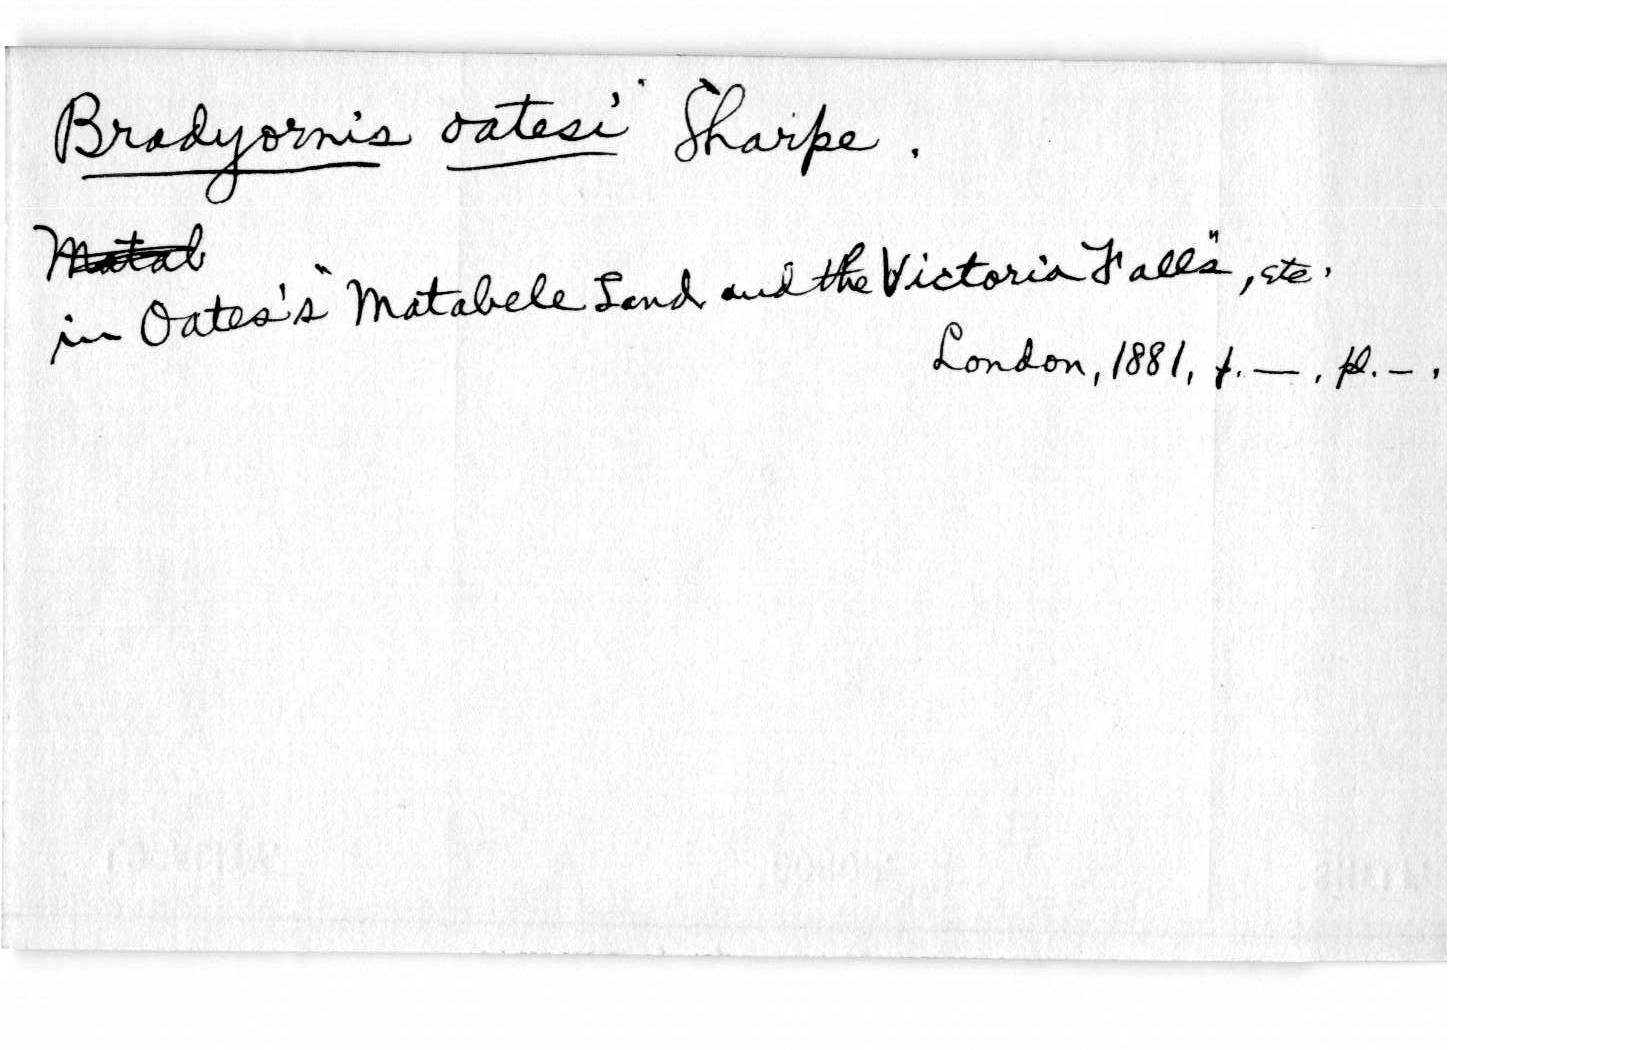 Bradyornis oatesi Sharpe.
Matab
in Oates's "Matabele Land and the Victoria Falls", etc.
London, 1881, p. — . pl. – .